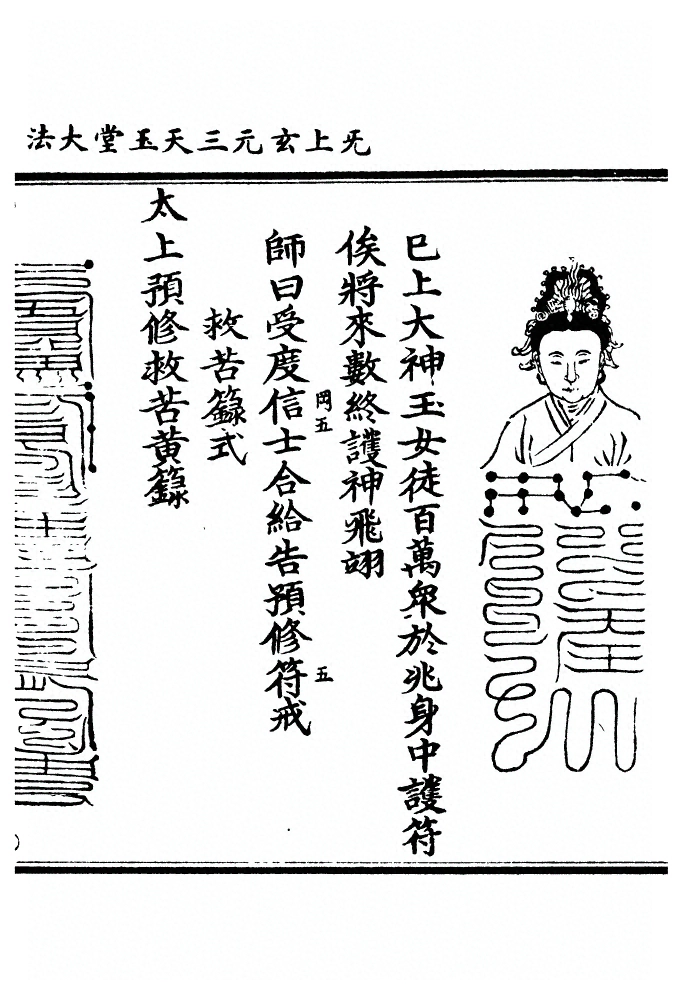 无上玄元三天玉堂大法
巳上大神玉女徒百萬眾於兆身中護符
俟將來數終護神飛翊
師曰受度信士合給告預修符戒
岡五
五
救苦籙式
太上預修救苦黃籙